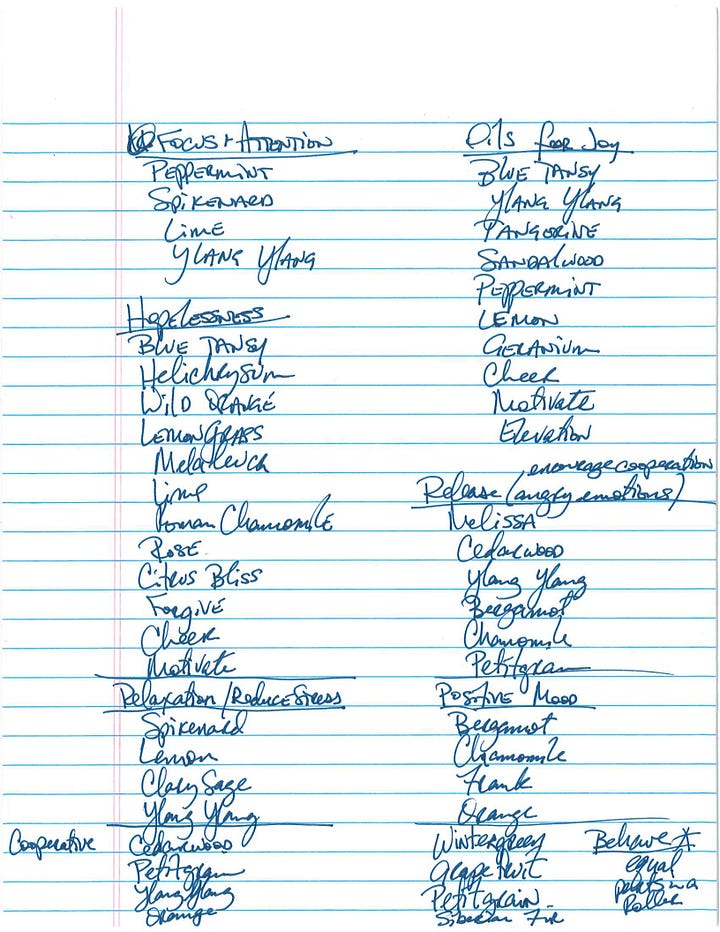 Focus + Attention
Peppermint
Spikenard
Lime
Ylang Ylang
Hopelessness
Blue Tansy
Helichrysum
Wild Orange
LemonGrass
Lime
Roman Chamomile
Rose
Citrus Bliss
Forgive
Cheer
Motivate
Relaxation/Reduce Stress
Spikenard
Lemon
Clary Sage
Ylang Ylang
Cooperative Cedarwood
Petitgrain
Ylang Ylang
Orange
Oils for Joy
Blue Tansy
Ylang Ylang
Tangerine
Sandalwood
Peppermint
Lemon
Geranium
Cheer
Motivate
Elevation
encourage cooperation
Release (angry emotions)
Melissa
Cedarwood
Ylang Ylang
Bergamot
Chamomile
Petitgrain
Positive Mood
Bergamot
Chamomile
Frank
Orange
Wintergreen
Grapefruit
Petitgrain
Siberian Fir
Behave *
equal
parts in a
Roller